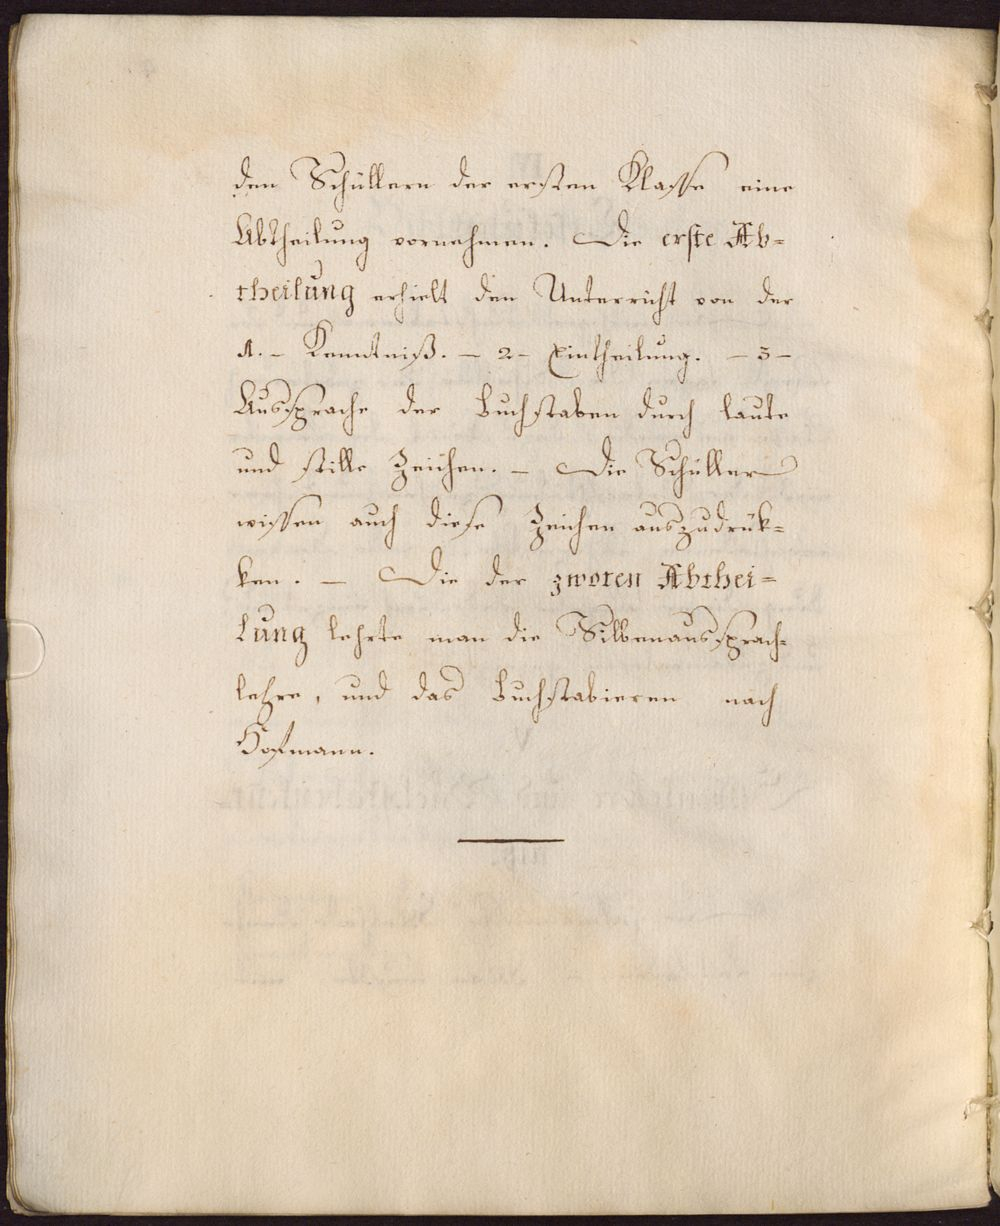 den Schüllern der ersten Klasse eine
Abtheilung vornehmen. Die erste Ab=
theilung erhielt den Unterricht von der
1. – Kenntniß. – 2 – Eintheilung. – 3 –
Aussprache der Buchstaben durch laute
und stille Zeichen. – Die Schüller
wissen auch diese Zeichen auszudrük=
ken. – Die der zwoten Abthei=
lung lehrte man die Silbenaussprach=
lehre, und das Buchstabieren nach
Hofmann.